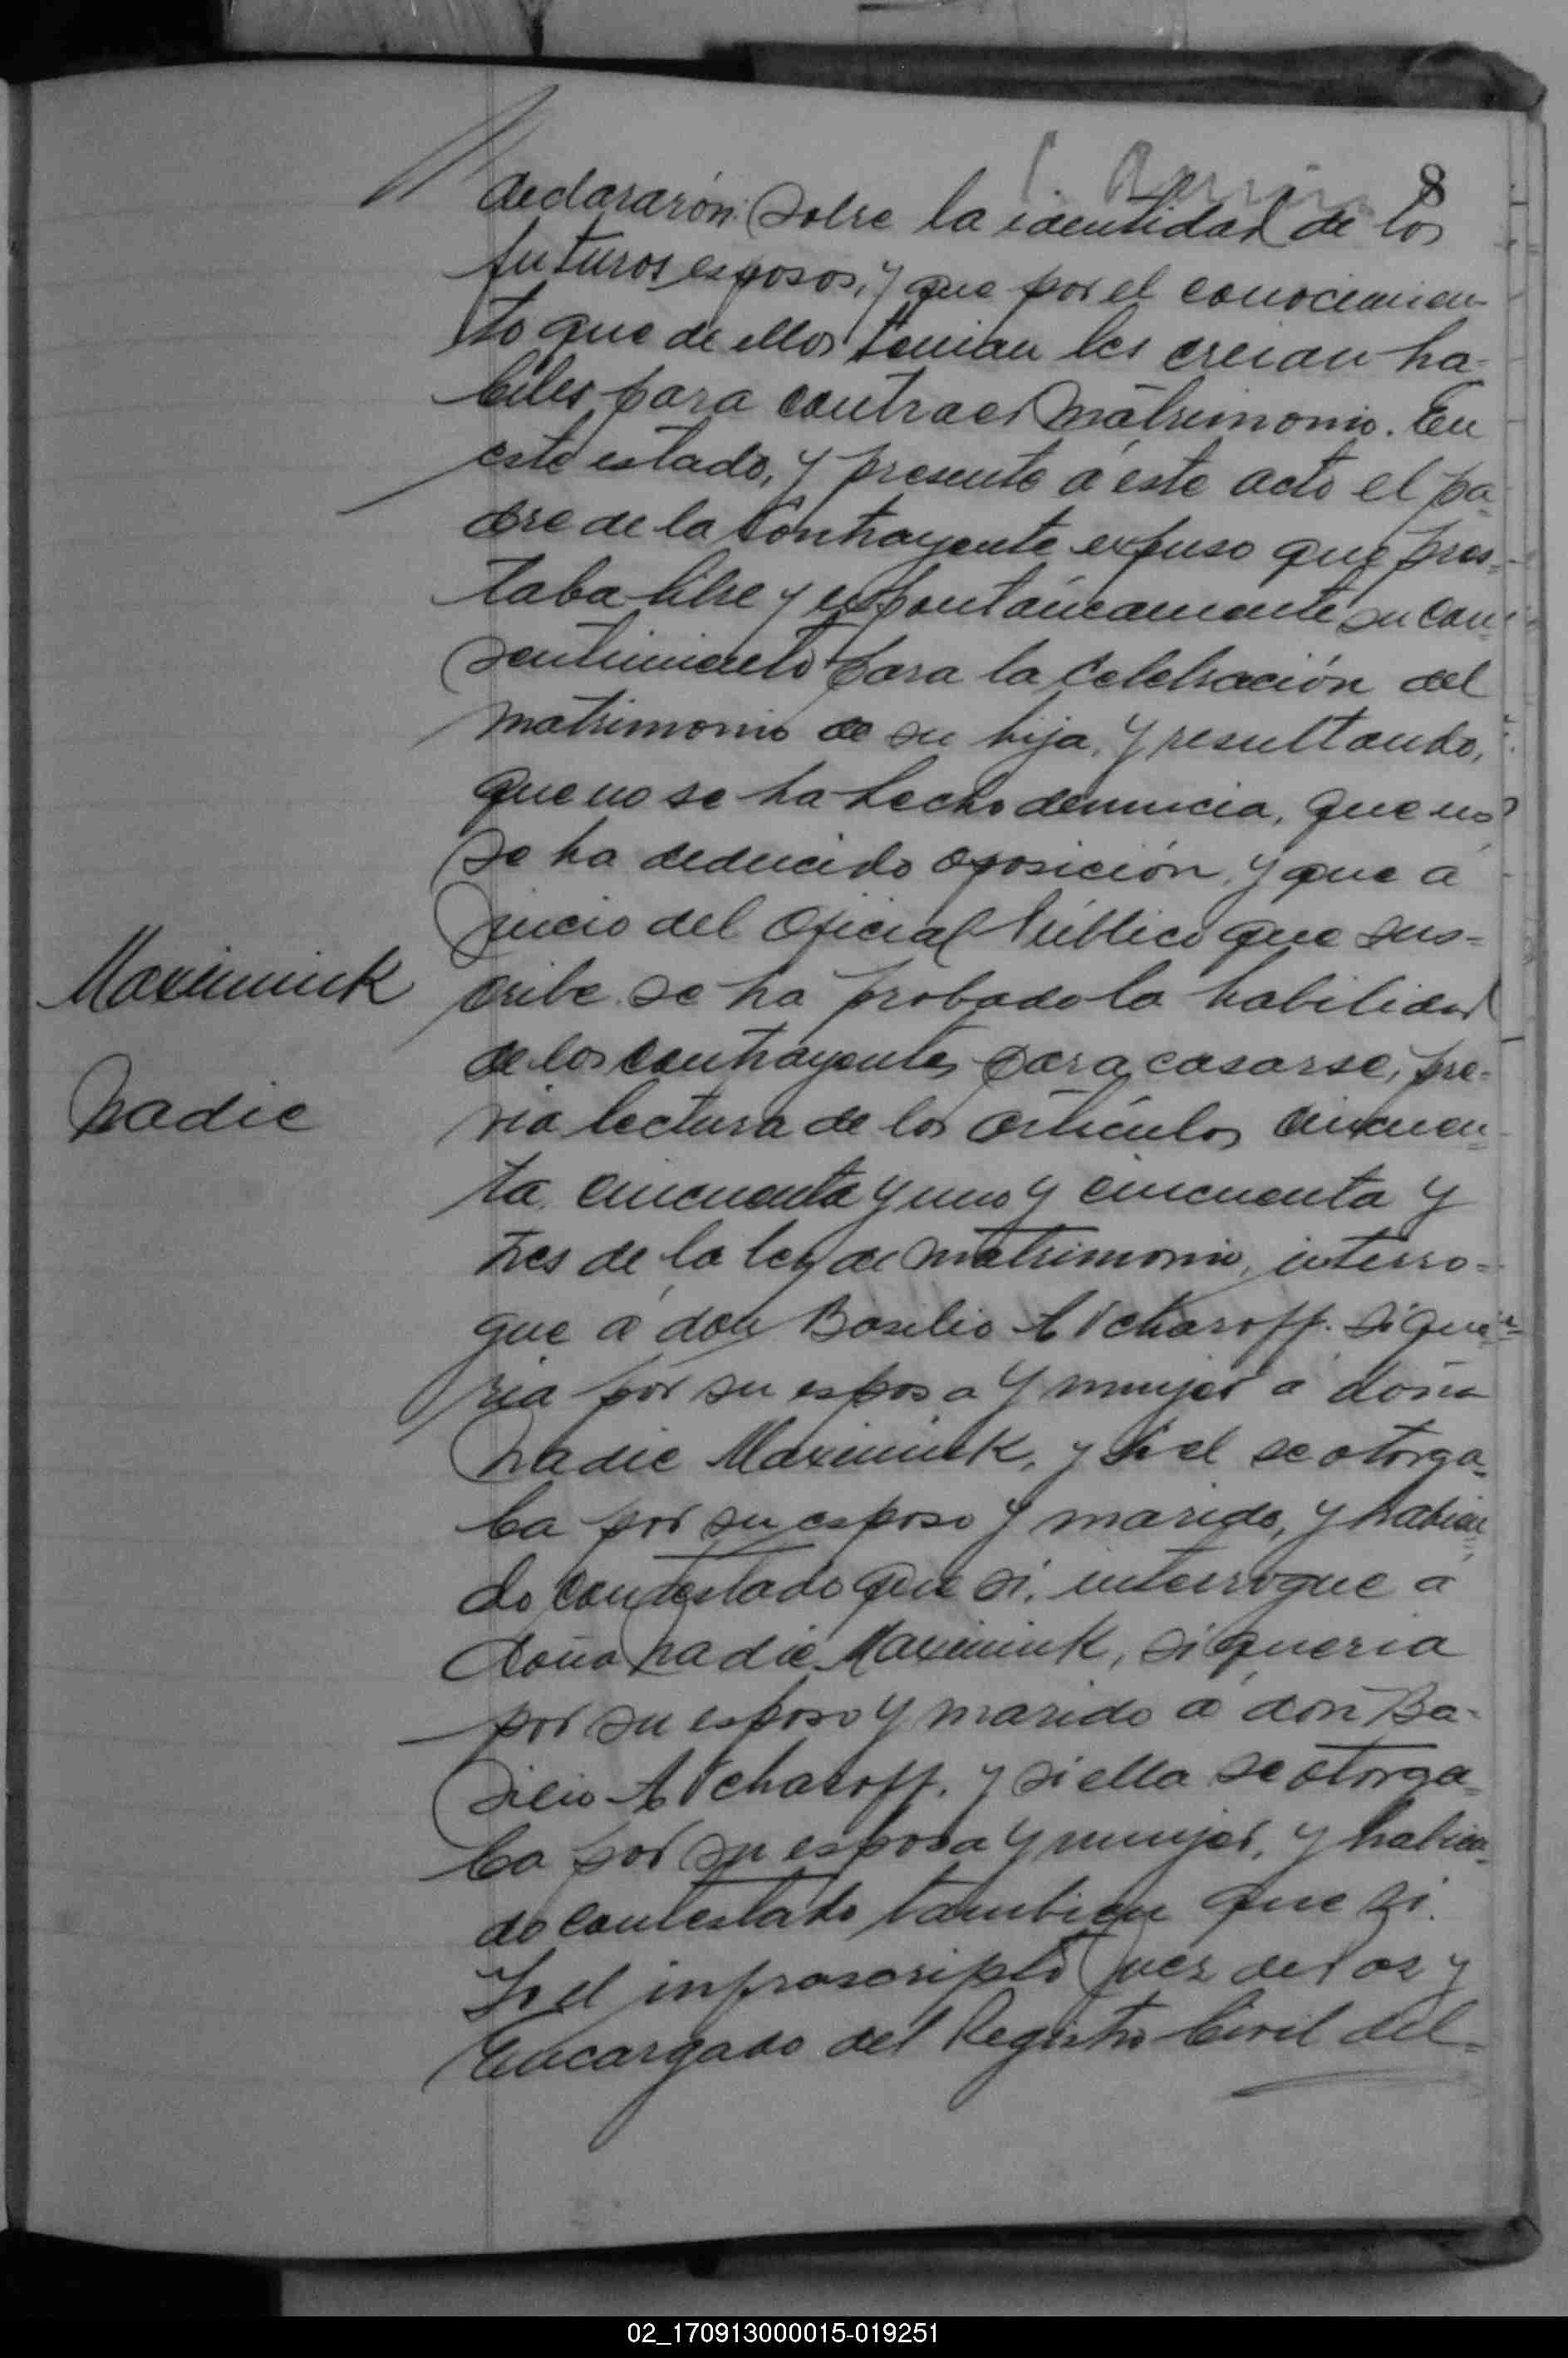 8
declararón: Sobre la identidad de los
futuros esposos, y que por el conocimien-
to que de ellos tenian les creian ha-
biles para contraer matrimonio. En
este estado, y presente á este acto el pa-
dre de la Contrayente expuso que pres-
taba libre y espontáneamente su con-
sentimiento para la Celebración del
matrimonio de su hija, y resultando,
que no se ha hecho denuncia, que no
se ha deducido oposición, y que á
juicio del Oficial Público que sus-
cribe se ha probado la habilidad
de los contrayentes para casarse, pre-
via lectura de los artículos cincuen-
ta, cincuenta y uno y cincuenta y
tres de la ley de matrimonio, interro-
gue á don Basilio A Vcharoff. si que-
ria por su esposa y mujer á doña
Nadie Maximiuk, y si el se otorga-
ba por su esposo y marido, y habien-
do contestado que si, interrogue a
doña Nadie Maximiuk, si queria
por su esposo y marido á don Ba-
silio A Vcharoff. y si ella se otorga-
ba por su esposa y mujer, y habien-
do contestado tambien que si.
Yo el infrascripto Juez de Paz y
Encargado del Registro Civil del
Maximiuk
Nadie
02_170913000015-019251